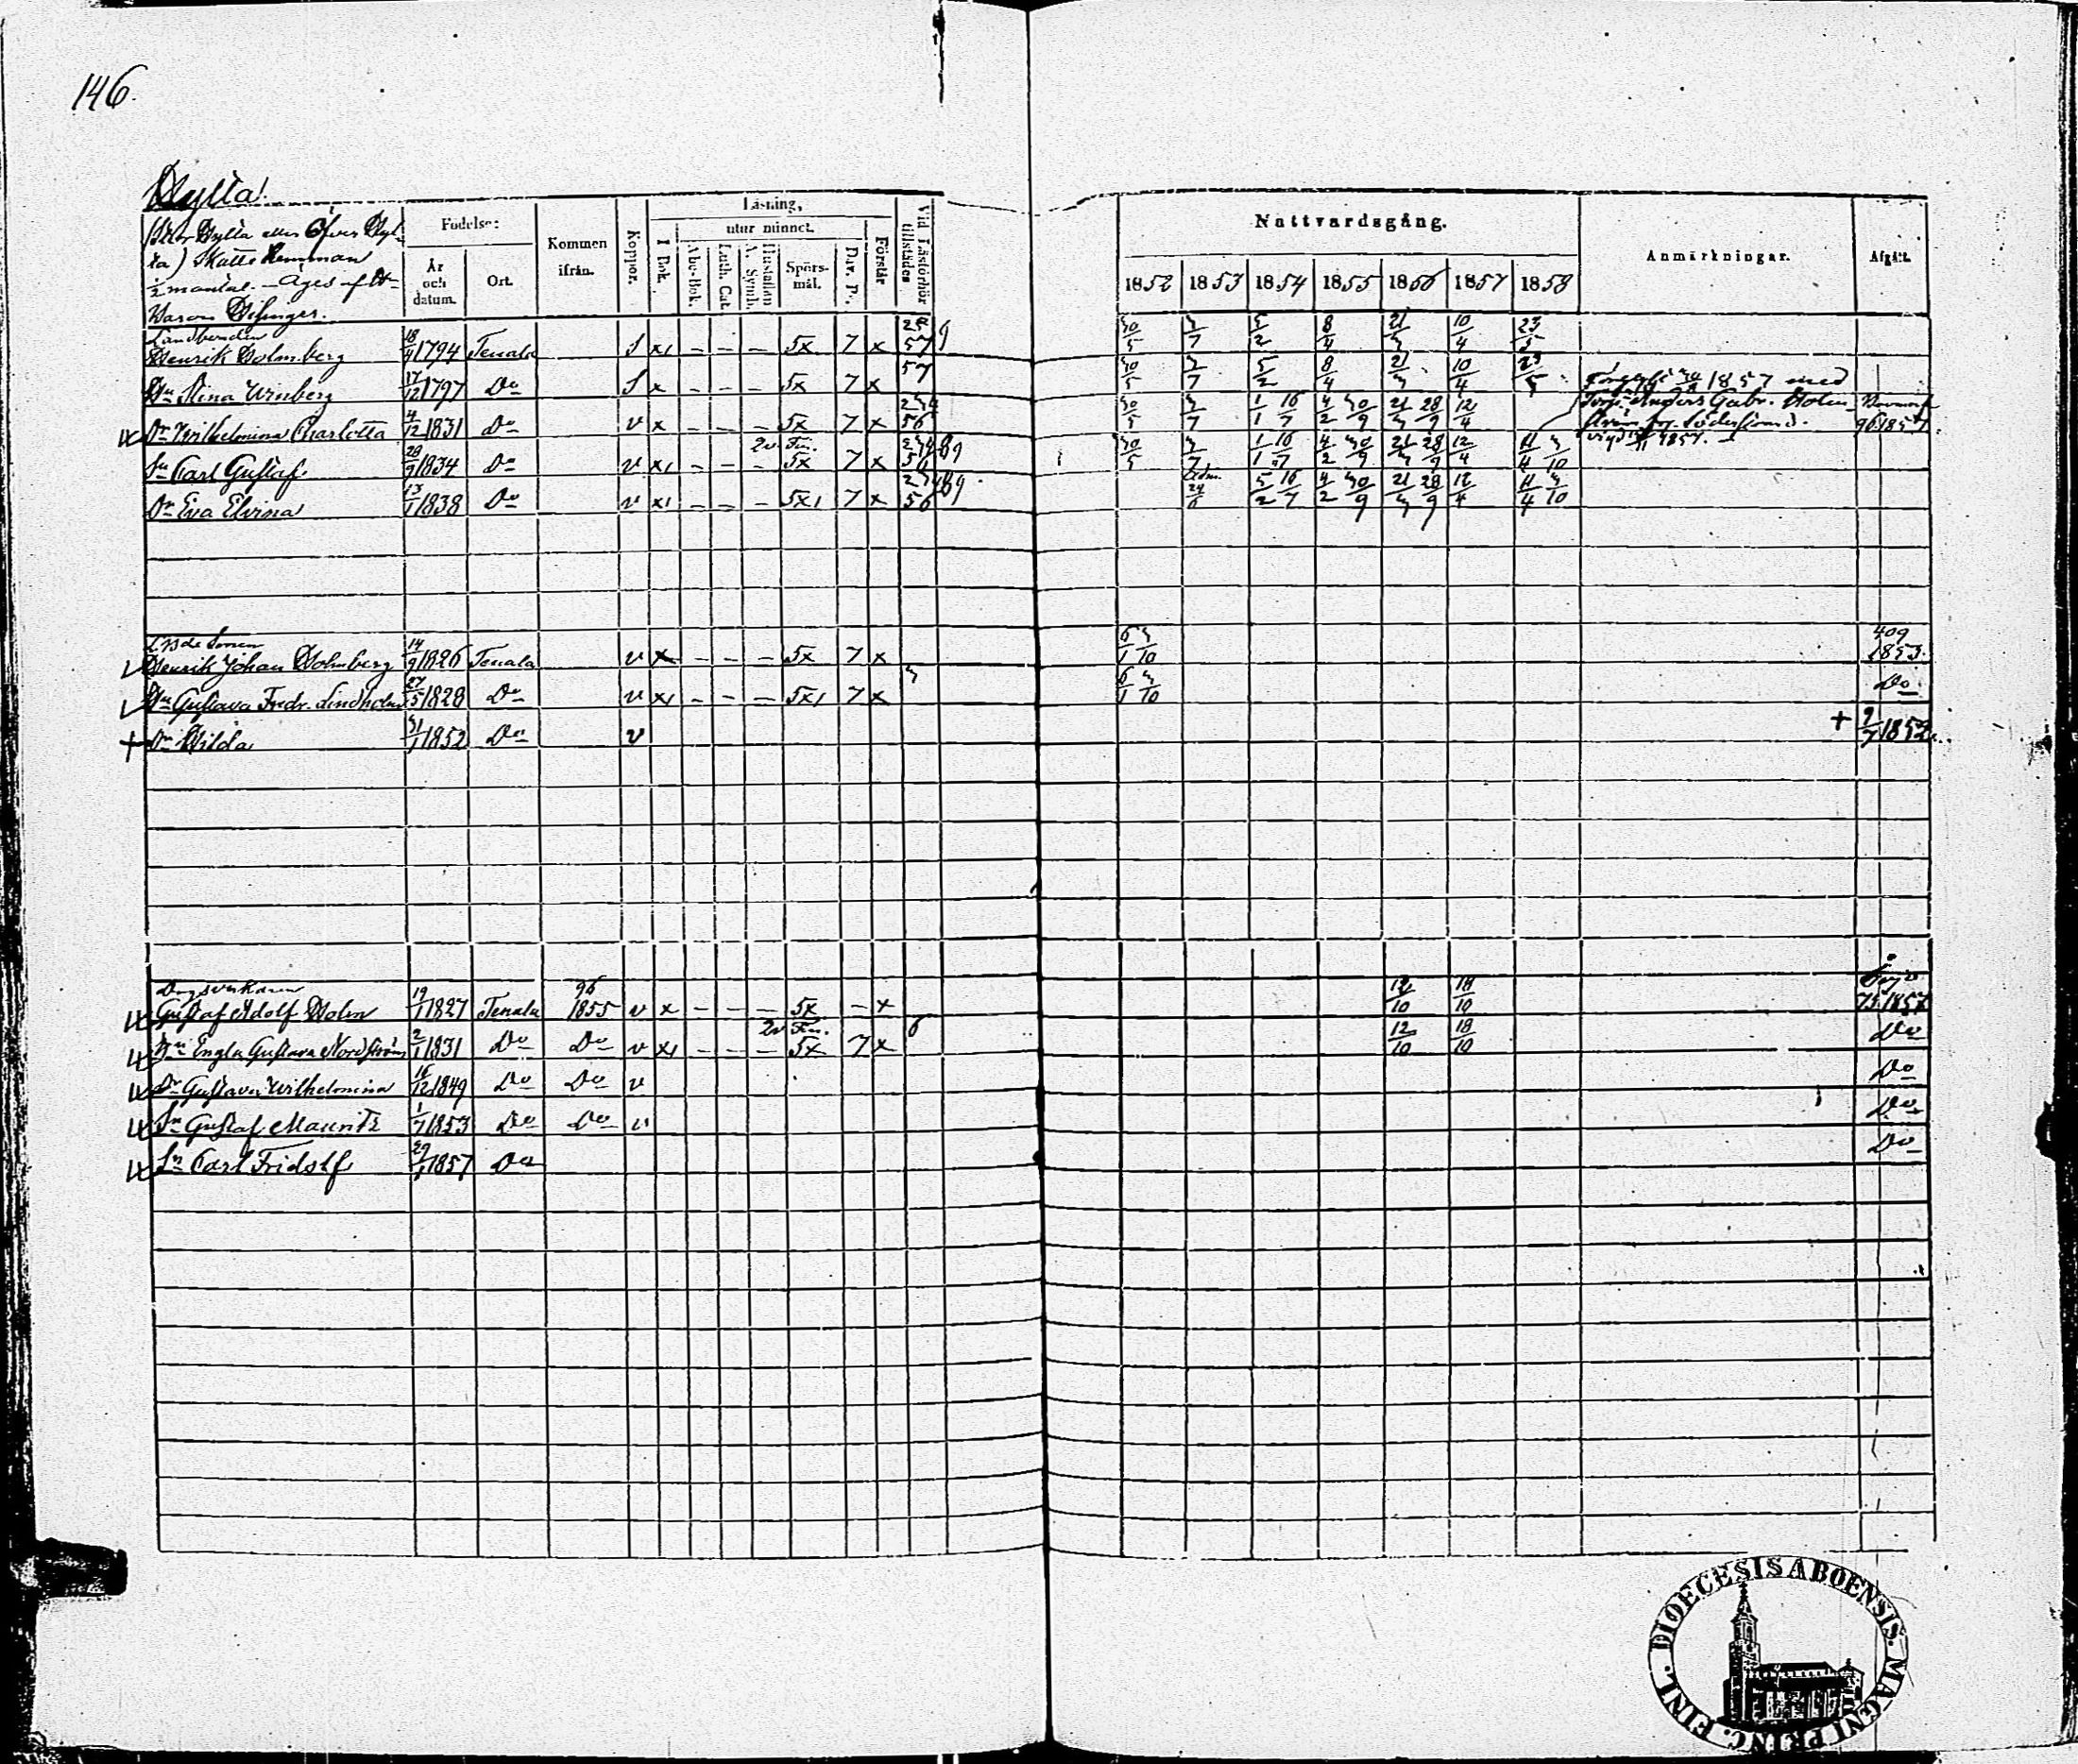 146.
Hylta.
(Stor Hylta eller Öfver Hyl-
ta) Skatte Hemman
1/2 mantal. — Äges af H-
Födelse:
År och datum.
Ort.
Kommen ifrån.
Koppor.
Läsning,
I Bok.
utur minnet.
Abc-Bok.
Luth. Cat.
Hustaflan A. Symb.
Spörs-mål.
Dav. Ps.
Förstår
Vid Läsförhör tillstädes
Nattvardsgång.
1852 1853 1854 1855 1856 1857 1858
Anmärkningar.
Afgått.
Landbonden
Henrik Holmberg 18/4 1794 Tenala S x1 – – – 5x 7 x 57 30/5 3/7 5/2 8/4 21/3 10/4 23/5
Hu Stina Winberg 17/12 1797 Do S x – – – 5x 7 x 57 30/5 3/7 5/2 8/4 21/3 10/4 23/5
Dr Wilhelmina Charlotta 4/12 1831 Do v x – – – 5x 7 x 56 30/5 3/7 1/1 16/7 4/2 30/9 21/3 28/9 12/4 1857 med Torp. Anders Gabr. Holm- 96 1857
Sn Carl Gustaf 28/9 1834 Do v x1 – – – 5x 7 x 30/5 3/7 1/1 16/7 4/2 30/9 21/3 28/9 12/4 11/4 3/10
Dr Eva Elvina 13/1 1838 Do v x1 – – – 5x1 7 x 56 Adm. 24/6 5/2 16/7 4/2 30/9 21/3 28/9 12/4 11/4 3/10
Sonen
Henrik Johan Holmberg 14/9 1826 Tenala v x – – – 5x 7 x 6/1 3/10 409 1853.
Hu Gustava Fredr. Lindholm 27/5 1828 Do v x1 – – – 5x1 7 x 3 6/1 3/10 Do
+ Dr Hilda 31/1 1852 Do v + 9/7 1852
Dagsverkaren
Gustaf Adolf Holm 19/1 1827 Tenala 96 1855 v x – – – 5x – x 12/10 18/10 75 1857
Hu Engla Gustava Nordström 2/1 1831 Do Do v x1 – – – 5x 7 x 6 12/10 18/10 Do
Dr Gustava Wilhelmina 16/12 1849 Do Do v Do
Sn Gustaf Mauritz 1/7 1853 Do Do v Do
Sn Carl Fridolf 1857 Do Do
FINL. DIOECESIS ABOENSIS. MAGNI PRINC.